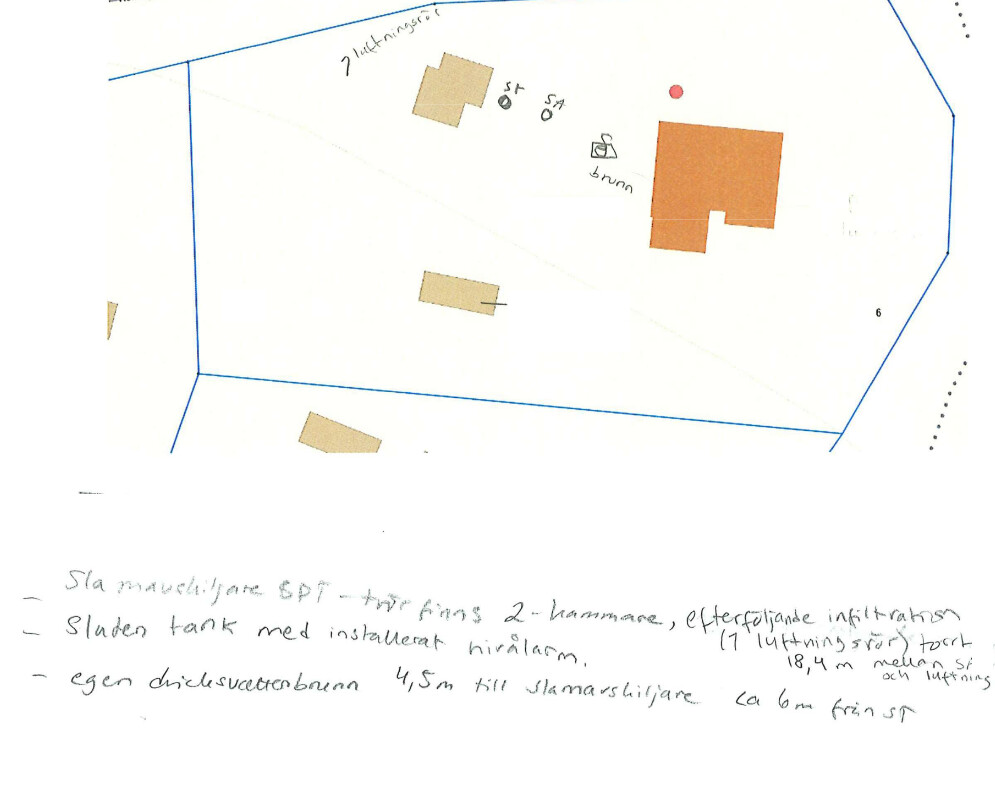 1 luftningsrör
ST
SA
brunn
6
- Slamavskiljare BDT - trör finns 2-kammare, efterföljande infiltration
(1 luftningsrör) torrt
- Sluten tank med installerat nivålarm.
18,4 m mellan ST
och luftning
- egen dricksvattenbrunn 4,5m till slamavskiljare ca 6m från ST